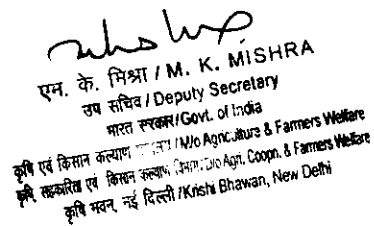 एम. के. मिश्रा / M. K. MISHRA
उप सचिव / Deputy Secretary
भारत सरकार/Govt. of India
कृषि एवं किसान कल्याण / M/o Agriculture & Farmers Welfare
कृषि, सहकारिता एवं किसान कल्याण विभाग/D/o Agri, Coopn. & Farmers Welfare
कृषि भवन, नई दिल्ली /Krishi Bhawan, New Delhi